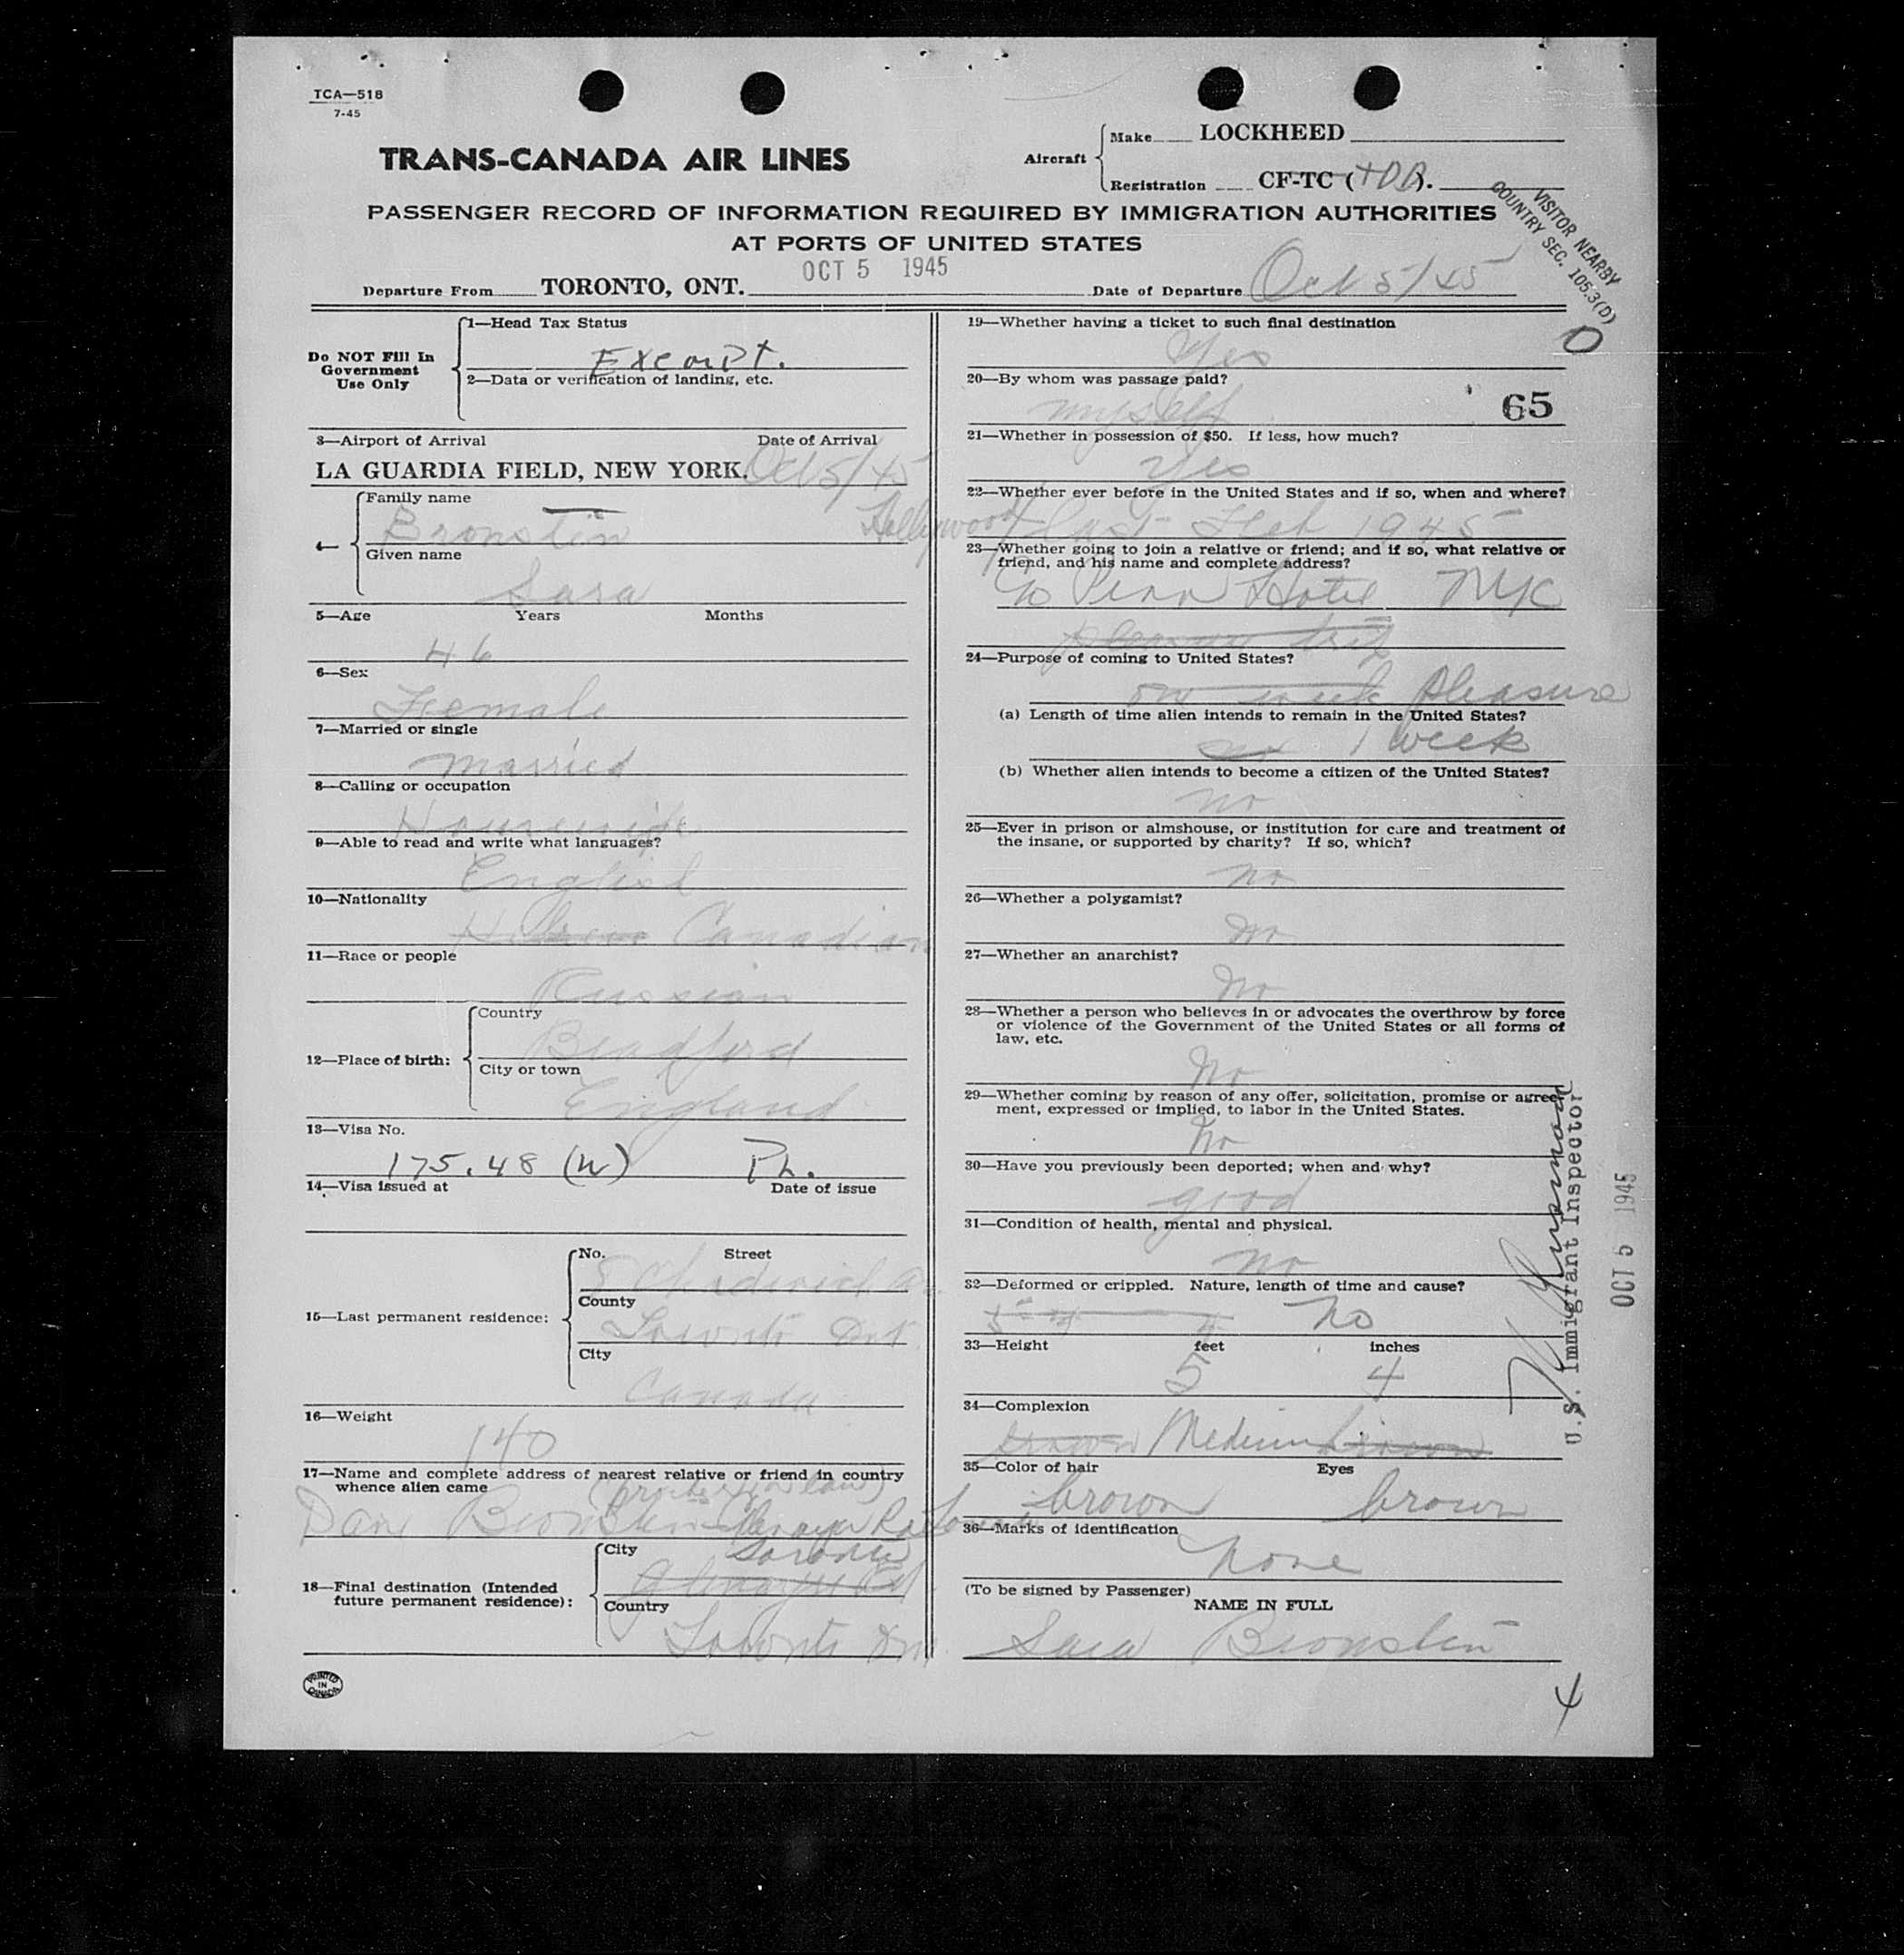 TCA—518
7-45
TRANS-CANADA AIR LINES
Aircraft
Make LOCKHEED
Registration CF-TC ( ).
PASSENGER RECORD OF INFORMATION REQUIRED BY IMMIGRATION AUTHORITIES
AT PORTS OF UNITED STATES
VISITOR NEARBY
COUNTRY SEC. 105.3(D)
OCT 5 1945
Departure From TORONTO, ONT. Date of Departure Oct 5/45
Do NOT Fill In
Government
Use Only
1—Head Tax Status
Exempt.
2—Data or verification of landing, etc.
3—Airport of Arrival Date of Arrival
LA GUARDIA FIELD, NEW YORK. Oct 5/45
Family name
Bronstin
Given name
Sara
5—Age Years Months
46
6—Sex
Female
7—Married or single
married
8—Calling or occupation
Housewife
9—Able to read and write what languages?
English
10—Nationality
Hebrew Canadian
11—Race or people
Russian
12—Place of birth:
Country
Bradford
City or town
England
13—Visa No.
175.48 (W) Ph.
14—Visa issued at Date of issue
15—Last permanent residence:
No. Street
5 Chadwick Av.
County
Toronto Ont
City
Canada
16—Weight
140
17—Name and complete address of nearest relative or friend in country
whence alien came
(brother in law)
Dan Bronstein Toronto
18—Final destination (Intended
future permanent residence):
City
Toronto
Country
Toronto Ont
PRINTED
IN
CANADA
19—Whether having a ticket to such final destination
Yes
O
20—By whom was passage paid?
myself
65
21—Whether in possession of $50. If less, how much?
yes
22—Whether ever before in the United States and if so, when and where?
Hollywood last Feb 1945
23—Whether going to join a relative or friend; and if so, what relative or
friend, and his name and complete address?
c/o Penn Hotel NYC
pleasure trip
24—Purpose of coming to United States?
one week pleasure
(a) Length of time alien intends to remain in the United States?
1 week
(b) Whether alien intends to become a citizen of the United States?
no
25—Ever in prison or almshouse, or institution for care and treatment of
the insane, or supported by charity? If so, which?
no
26—Whether a polygamist?
no
27—Whether an anarchist?
no
28—Whether a person who believes in or advocates the overthrow by force
or violence of the Government of the United States or all forms of
law, etc.
no
29—Whether coming by reason of any offer, solicitation, promise or agree-
ment, expressed or implied, to labor in the United States.
no
30—Have you previously been deported; when and why?
good
31—Condition of health, mental and physical.
no
32—Deformed or crippled. Nature, length of time and cause?
no
33—Height feet inches
5 4
34—Complexion
brown Medium brown
35—Color of hair Eyes
brown brown
36—Marks of identification
none
(To be signed by Passenger)
NAME IN FULL
Sara Bronstein
4
U.S. Immigrant Inspector
OCT 5 1945